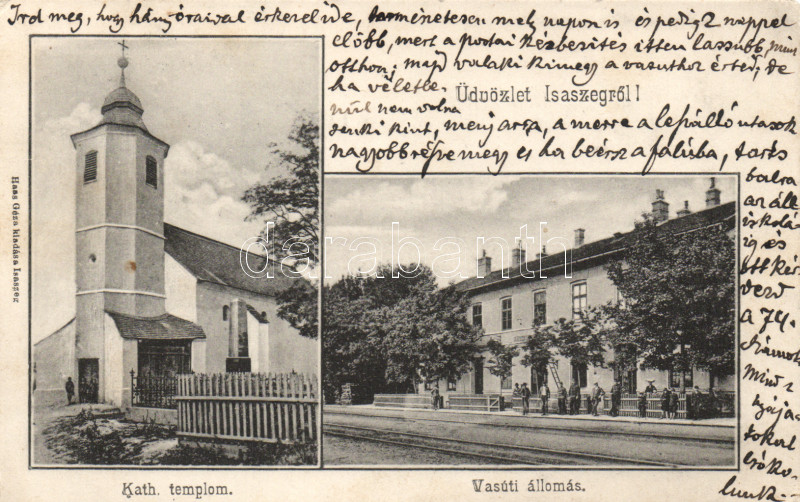 Ird meg, hogy hány órával érkezel ide, természetesen mely napon is és pedig 2 nappel
előbb, mert a postai kézbesítés itten lassubb, mint
otthon; majd valaki kimegy a vasuthoz érted, de
ha véletle-
nül nem volna
senki kint, menj arra, a merre a leszálló utasok
nagyobb része megy és ha beérsz a faluba, tarts
balra
az áll.
iskolá-
ig és
ott kér-
dezd
a 74.
számot
Mind-
nyája-
tokat
csóko-
lunk
Üdvözlet Isaszegről!
Haas Géza kiadása Isaszeg
darabanth.com
Kath. templom.
Vasúti állomás.